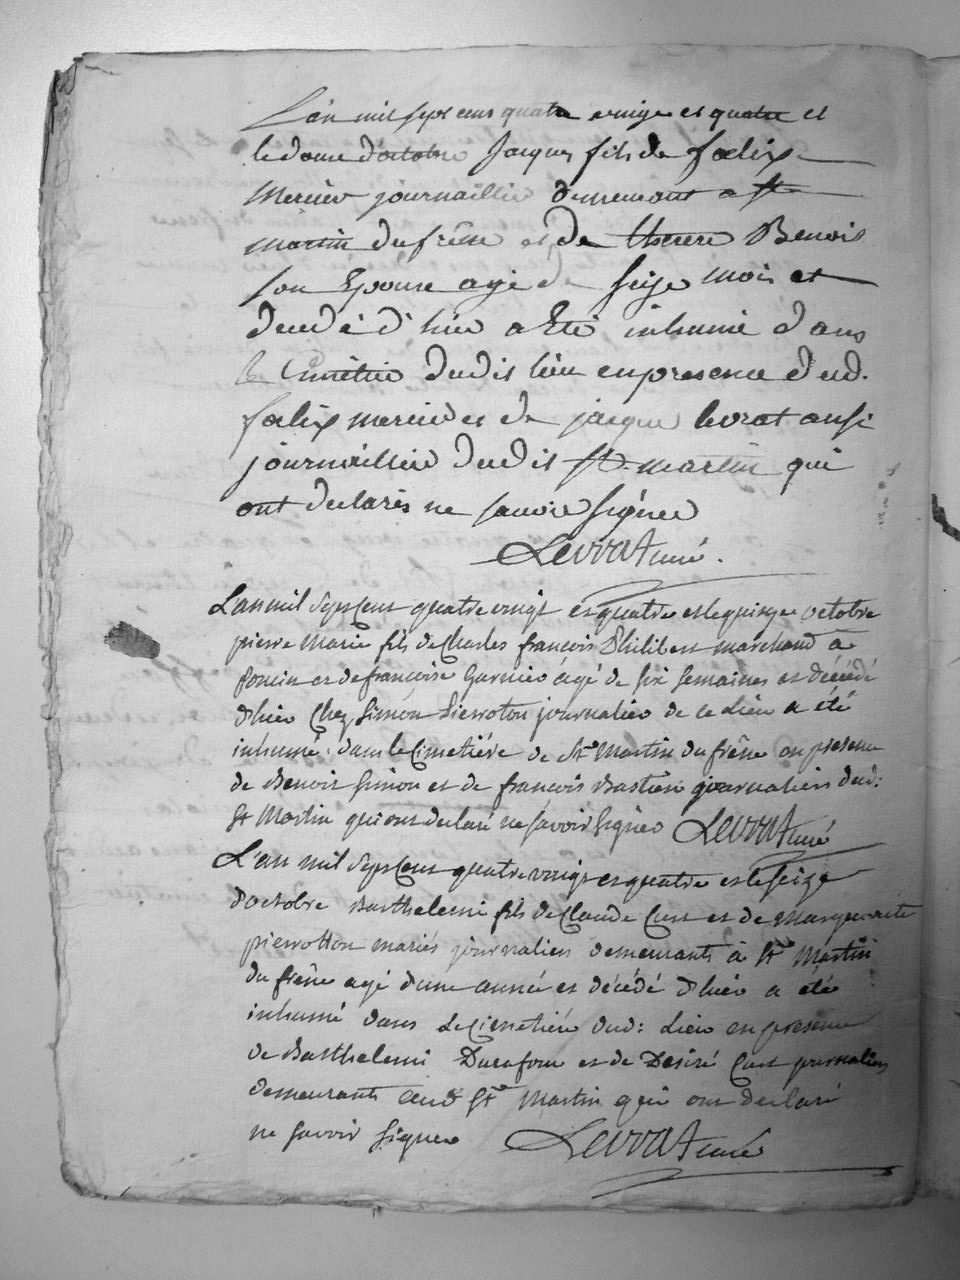 L'an mil sept cens quatre vingt et quatre et
le douze d'octobre Jacques fils de foelix
Mercier journaillier demeurant a St
Martin dufrêne et de therese Benoit
son Epouse agé de seize mois et
decedé d'hier a Eté inhumé dans
le Cimetiere dudit lieu en presence dud.
foelix mercier et de jacque levrat ausi
journaillier dudit St martin qui
ont declarés ne savoir signer
Levrat curé.
L'an mil Sept Cent quatre vingt et quatre et le quinze octobre
pierre Marie fils de Charles françois Philibert marchand à
Poncin et de françoise Garnier âgé de six semaines et décédé
d'hier Chez Simon Pierroton journalier de ce Lieu a été
inhumé dans le Cimetiére de St Martin du frêne en presence
de Benoit Simon et de françois Bastien journaliers dud:
St Martin qui ont declaré ne savoir signer Levrat curé
L'an mil Sept Cent quatre vingt et quatre et le seize
d'octobre Barthelemi fils de Claude Curt et de Marguerite
pierrotton mariés journaliers demeurants à St Martin
du frêne agé d'une année et décédé d'hier a été
inhumé dans le Cimetiére dud: Lieu en presence
de Barthelemi Ducafour et de Desiré Curt journaliers
demeurants aud St Martin qui ont declaré
ne savoir signer Levrat curé